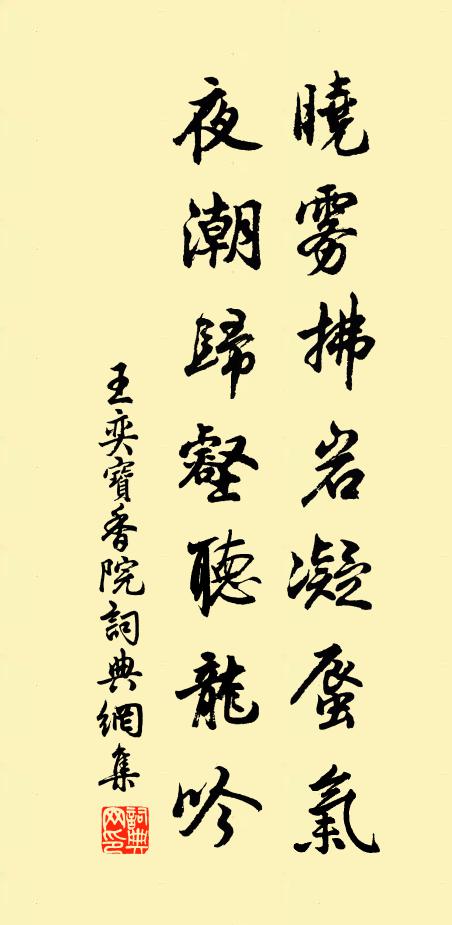 曉雾拂岩凝蜃氣
夜潮歸壑聽龍吟
王奕寶香院詞典網集
詞典网印